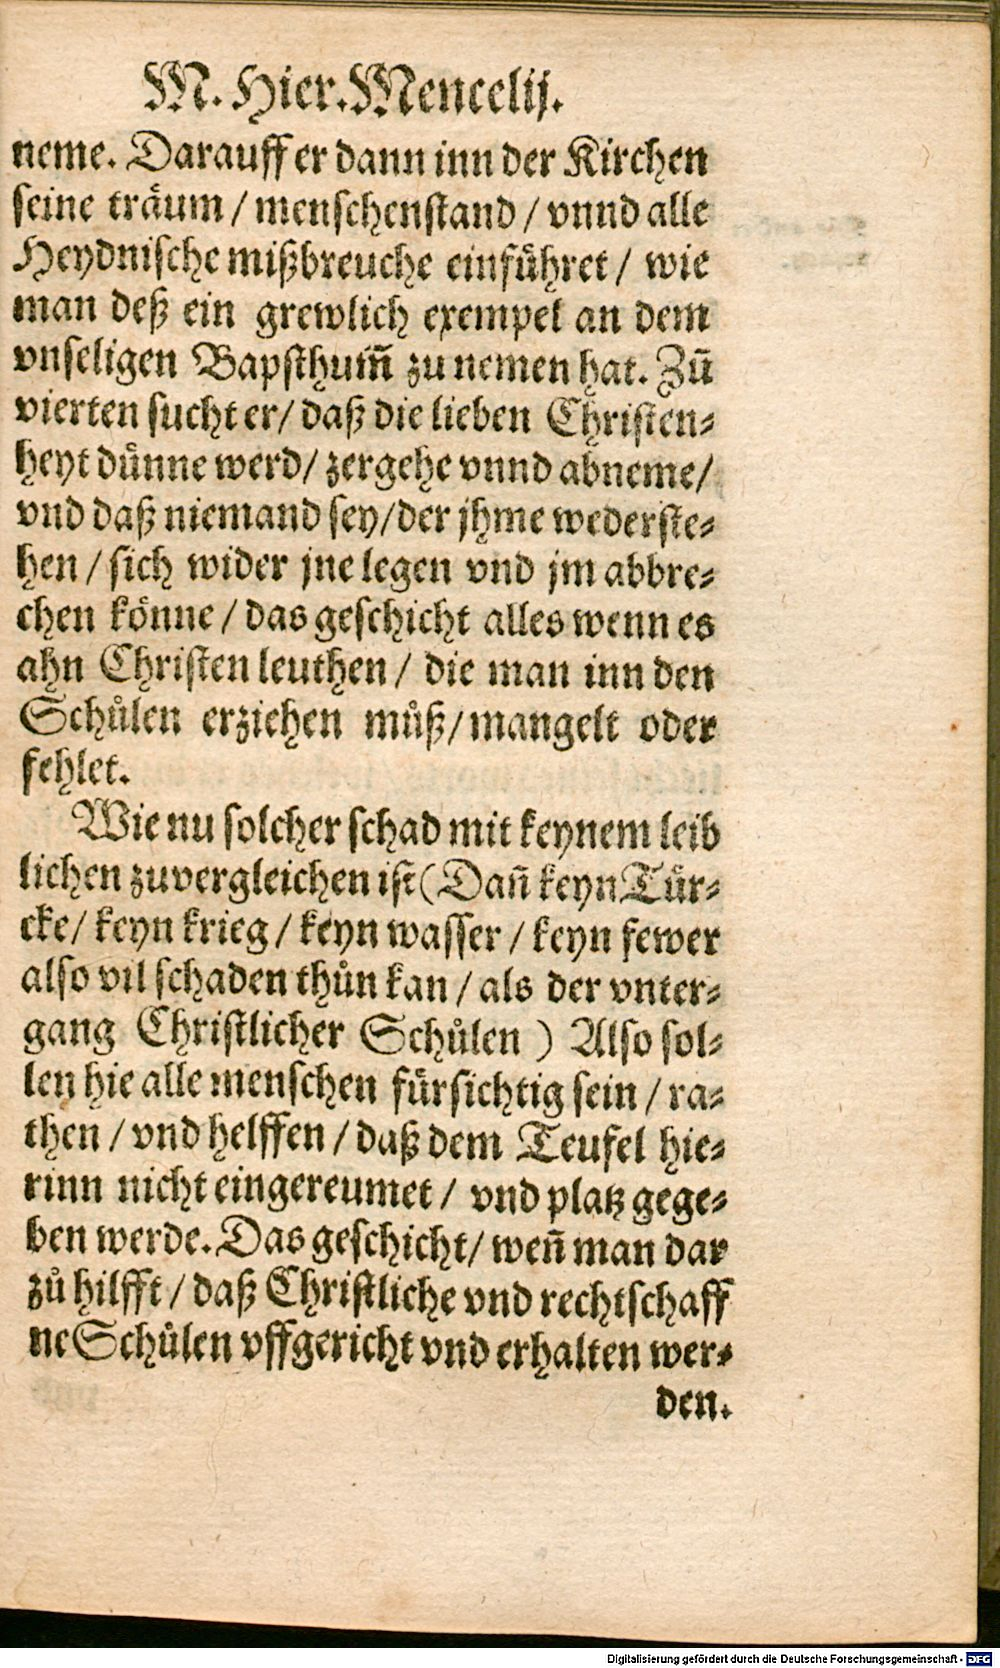 M. Hier. Mencelij.
neme. Darauff er dann inn der Kirchen
seine träum / menschenstand / vnnd alle
Heydnische mißbreuche einführet / wie
man deß ein grewlich exempel an dem
vnseligen Bapsthum̃ zu nemen hat. Zũ
vierten sucht er / daß die lieben Christen-
heyt dünne werd / zergehe vnnd abneme /
vnd daß niemand sey / der jhme wederste-
hen / sich wider jne legen vnd jm abbre-
chen könne / das geschicht alles wenn es
ahn Christen leuthen / die man inn den
Schůlen erziehen můß / mangelt oder
fehlet.
Wie nu solcher schad mit keynem leib
lichen zuvergleichen ist (Dañ keyn Tür-
cke / keyn krieg / keyn wasser / keyn fewer
also vil schaden thůn kan / als der vnter-
gang Christlicher Schůlen ) Also sol-
len hie alle menschen fürsichtig sein / ra-
then / vnd helffen / daß dem Teufel hie-
rinn nicht eingereumet / vnd platz gege-
ben werde. Das geschicht / weñ man dar
zů hilfft / daß Christliche vnd rechtschaff
ne Schůlen vffgericht vnd erhalten wer-
den.
Digitalisierung gefördert durch die Deutsche Forschungsgemeinschaft - DFG